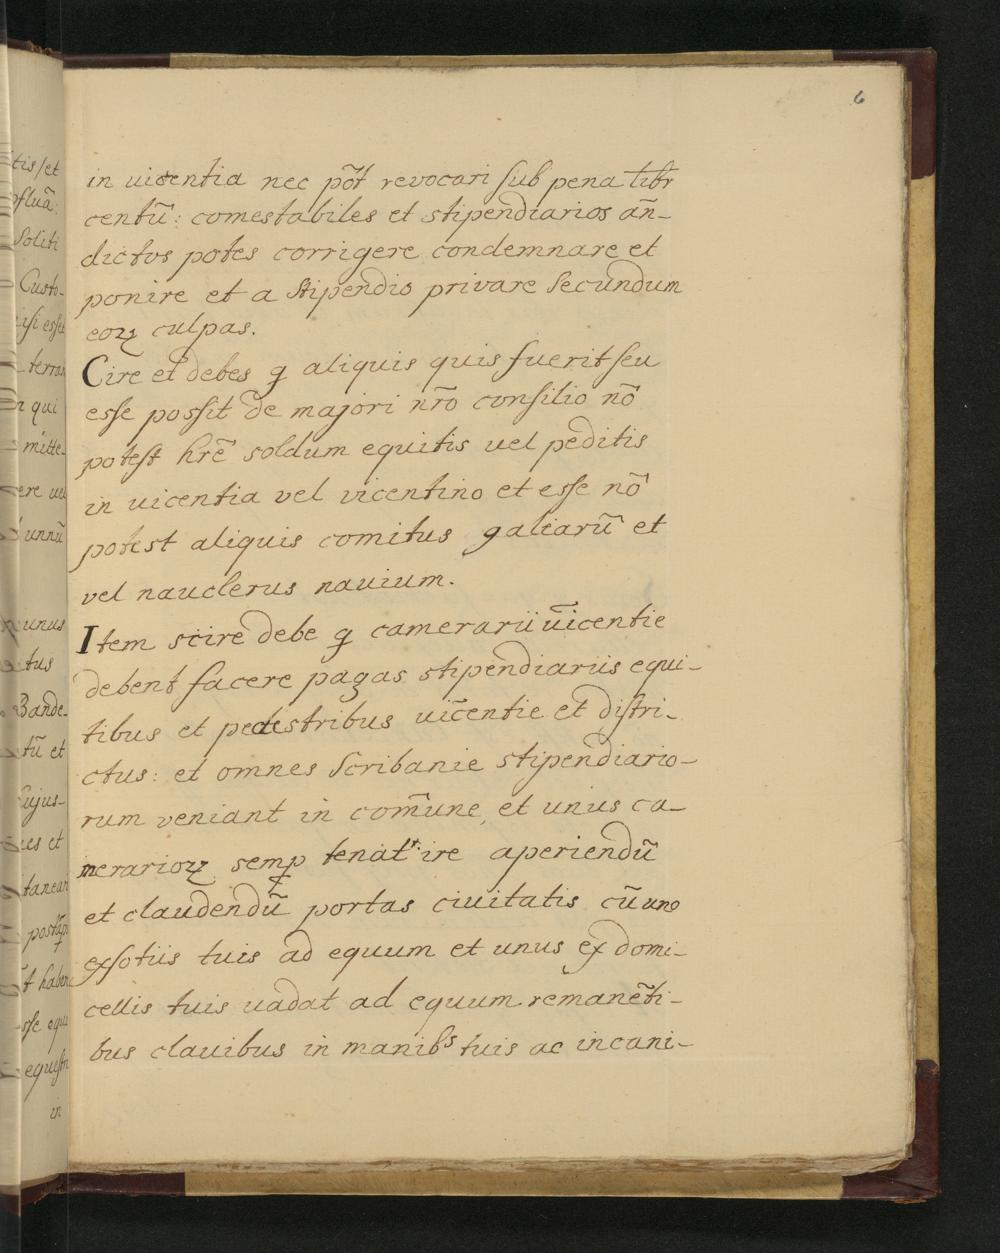 6
in uicentia nec põt revocari sub pena libr
centũ: comestabiles et stipendiarios añ-
dictos potes corrigere condemnare et
ponire et a stipendio privare secundum
eoꝝ culpas.
Cire et debes q̃ aliquis quis fuerit seu
esse possit de majori nr̃o consilio nõ
potest hrẽ soldum equitis vel peditis
in uicentia vel vicentino et esse nõ
potest aliquis comitus galiarũ et
vel nauclerus nauium.
Item scire debe q̃ camerarii uicentie
debent facere pagas stipendiariis equi-
tibus et pedestribus uicentie et distri-
ctus: et omnes scribanie stipendiario-
rum veniant in comune, et unus ca-
merarioꝝ semꝑ tenat.r ire aperiendũ
et claudendũ portas ciuitatis cũ uno
ex sotiis tuis ad equum et unus ex domi-
cellis tuis uadat ad equum remanẽti-
bus clauibus in manibs tuis ac in cani-
tis/et
soliti
Custo-
terras
qui
mitte-
unnũ
unus
tus
Bande-
tũ et
cujus-
et
in